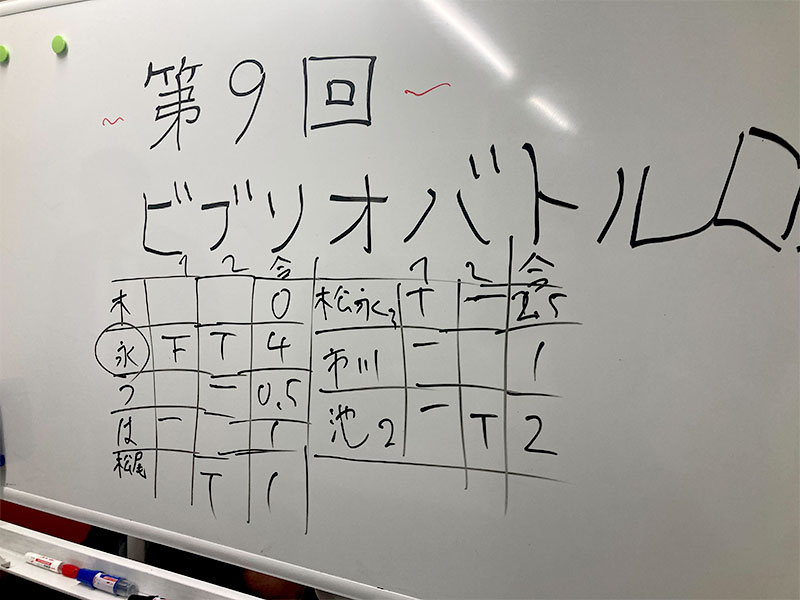 第9回
ビブリオバトル
1 2 合 1 2 合
木 0 松永3 T 一 2.5
永 下 T 4 市川 一 1
つ 一 0.5 池2 一 T 2
は 一 1
松尾 T 1